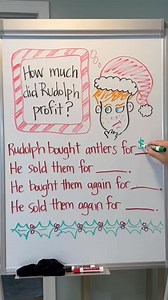 How much
did Rudolph
profit?
Rudolph bought antlers for $
He sold them for ____.
He bought them again for ____.
He sold them again for ____.